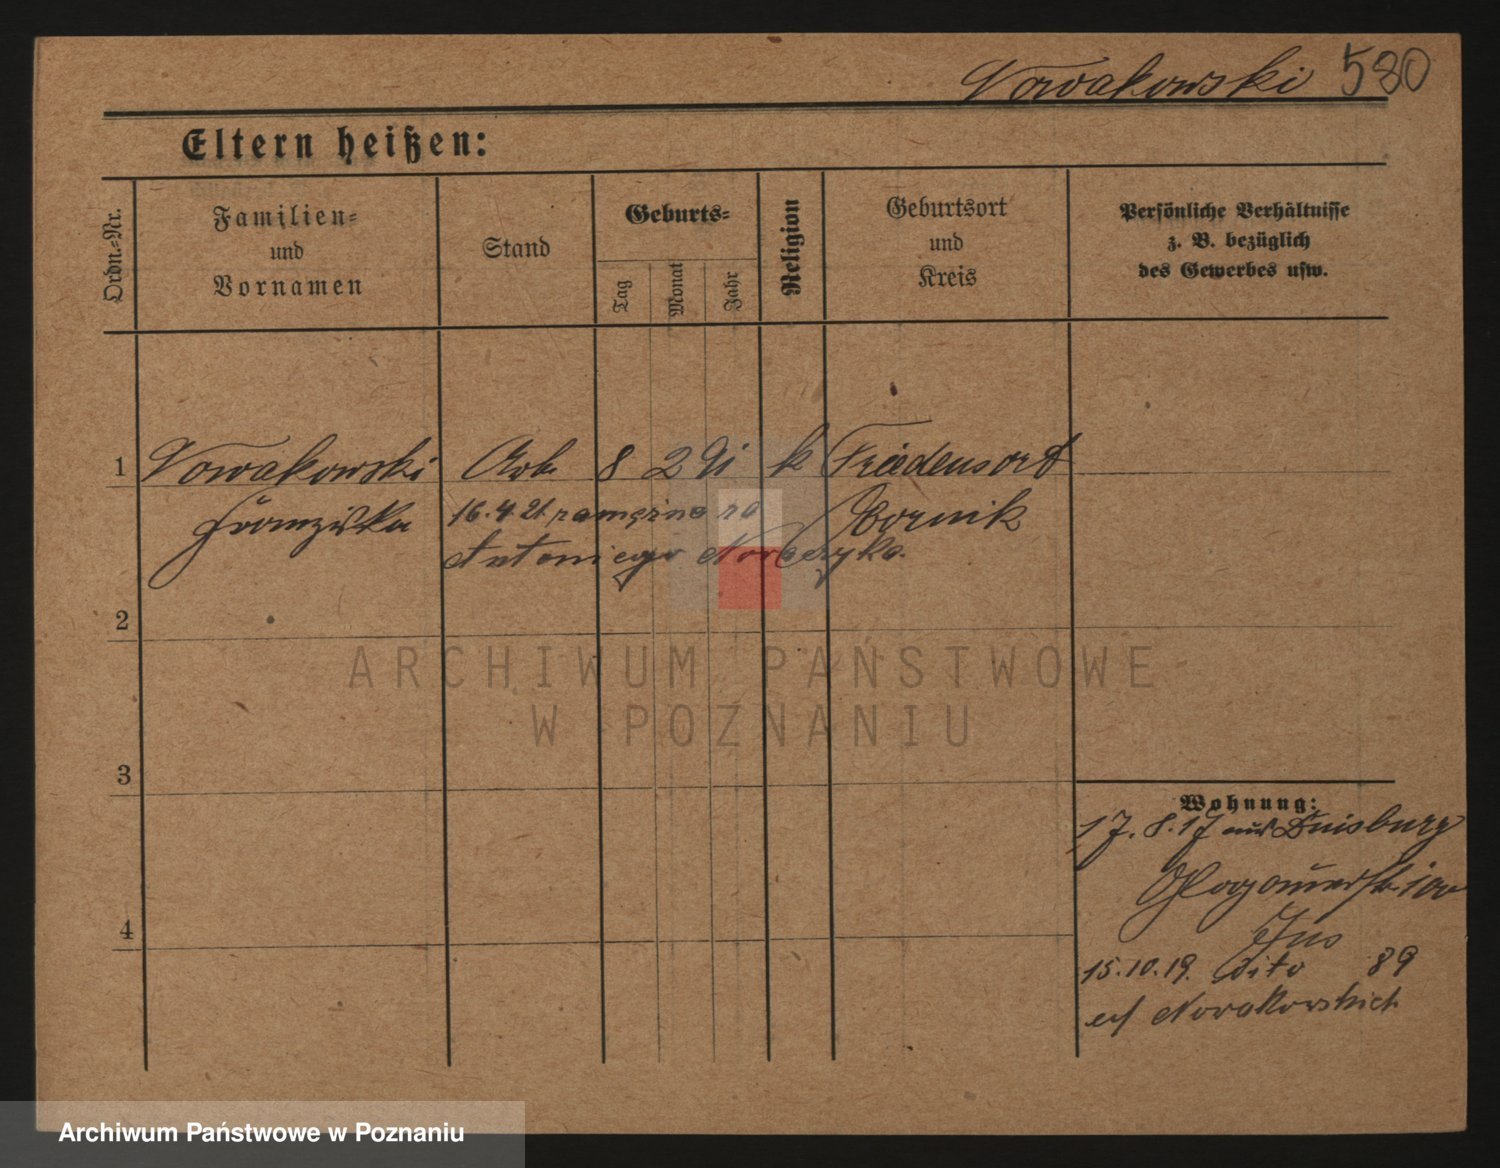 Nowakowski 580
Eltern heißen:
Ordn.-Nr.
Familien-
und
Vornamen
Stand
Geburts-
Tag
Monat
Jahr
Religion
Geburtsort
und
Kreis
Persönliche Verhältnisse
z. B. bezüglich
des Gewerbes usw.
1 Nowakowski Arb. 8 2 91 k Friedensort
Franziska Bornik
16.4.21 zamężna za
Antoniego
2
ARCHIWUM PAŃSTWOWE
W POZNANIU
3
Wohnung:
17.8.17 aus Duisburg
4
15.10.19. dito 89
Nowakowskich
Archiwum Państwowe w Poznaniu